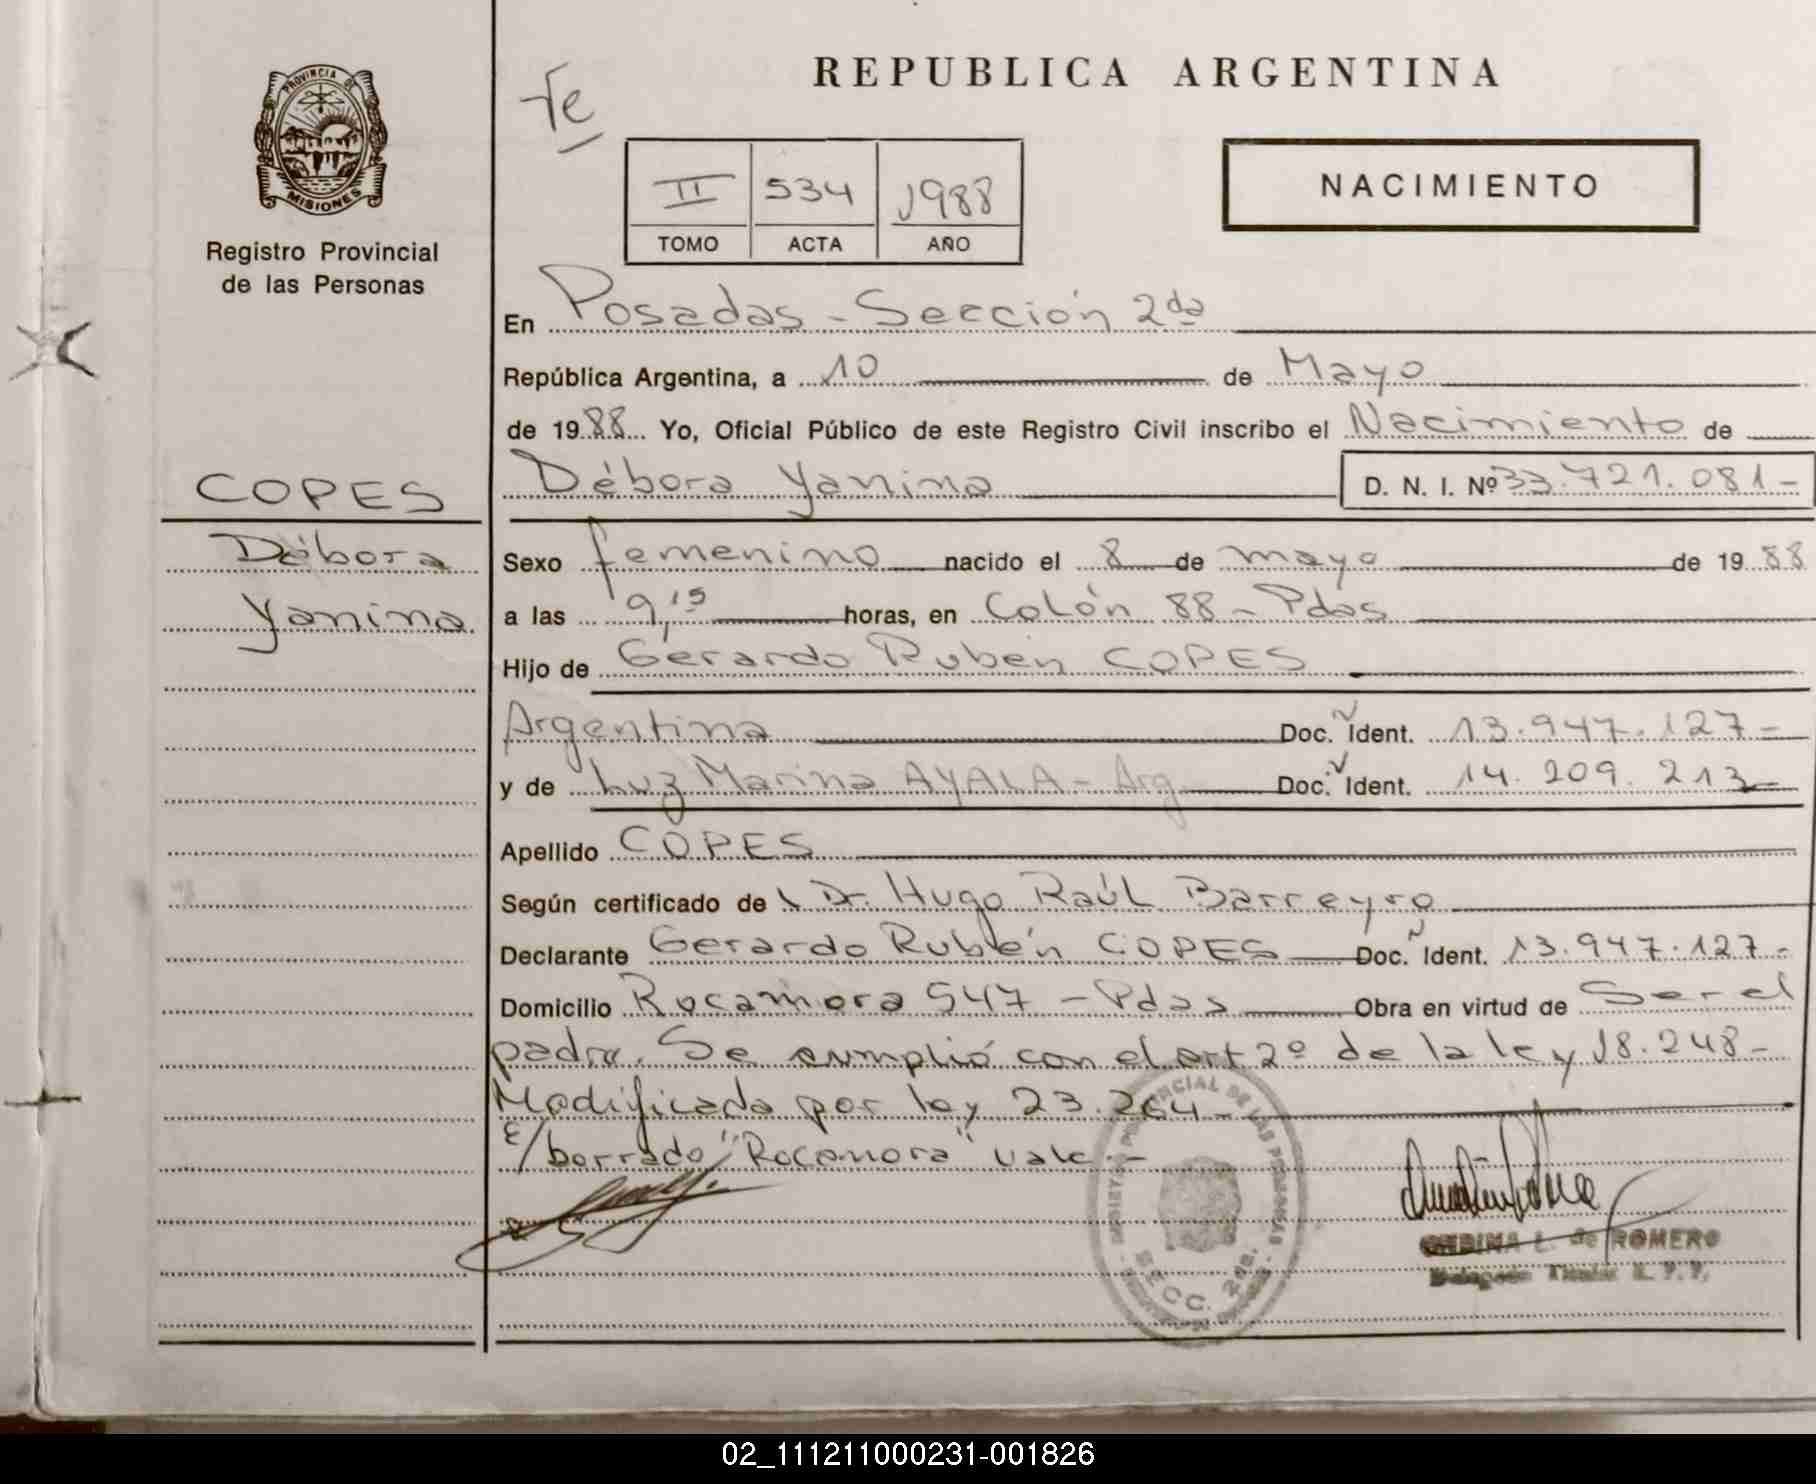 Te
REPUBLICA ARGENTINA
PROVINCIA DE
MISIONES
Registro Provincial
de las Personas
II 534 1988
TOMO ACTA AÑO
NACIMIENTO
En Posadas - Sección 2da
República Argentina, a 10 de Mayo
de 1988 Yo, Oficial Público de este Registro Civil inscribo el Nacimiento de
COPES
Débora Yanina D. N. I. Nº 33.721.081-
Débora
Sexo femenino nacido el 8 de mayo de 1988
Yanina
a las 9,15 horas, en Colón 88 - Pdas
Hijo de Gerardo Ruben COPES
Argentina Doc. Ident. 13.947.127-
y de Luz Marina AYALA - Arg Doc. Ident. 14.209.213-
Apellido COPES
Según certificado de Dr. Hugo Raúl Barreyro
Declarante Gerardo Rubén COPES Doc. Ident. 13.947.127-
Domicilio Rocamora 547 - Pdas Obra en virtud de Ser el
padre. Se cumplió con el art 2º de la ley 18.248-
Modificada por ley 23.264-
E/borrado "Rocamora" vale-
SECC. 2da.
L. de ROMERO
02_111211000231-001826